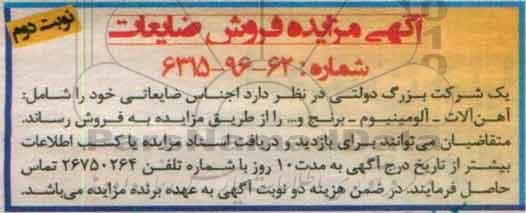 نوبت دوم
آگهی مزایده فروش ضایعات
شماره: ۶۲-۹۶-۶۳۱۵
یک شرکت بزرگ دولتی در نظر دارد اجناس ضایعاتی خود را شامل:
آهن آلات - آلومینیوم - برنج و... را از طریق مزایده به فروش رساند.
متقاضیان می‌توانند برای بازدید و دریافت اسناد مزایده یا کسب اطلاعات
بیشتر از تاریخ درج آگهی به مدت ۱۰ روز با شماره تلفن ۲۶۷۵۰۲۶۴ تماس
حاصل فرمایند. در ضمن هزینه دو نوبت آگهی به عهده برنده مزایده می‌باشد.